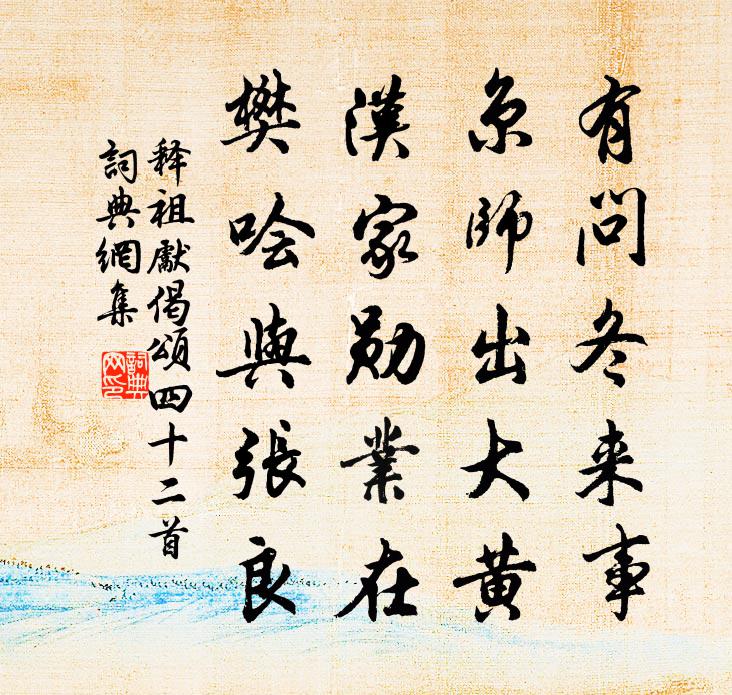 有问冬来事
京师出大黄
汉家勋业在
樊哙与张良
释祖献偈颂四十二首
词典网集
词典网印